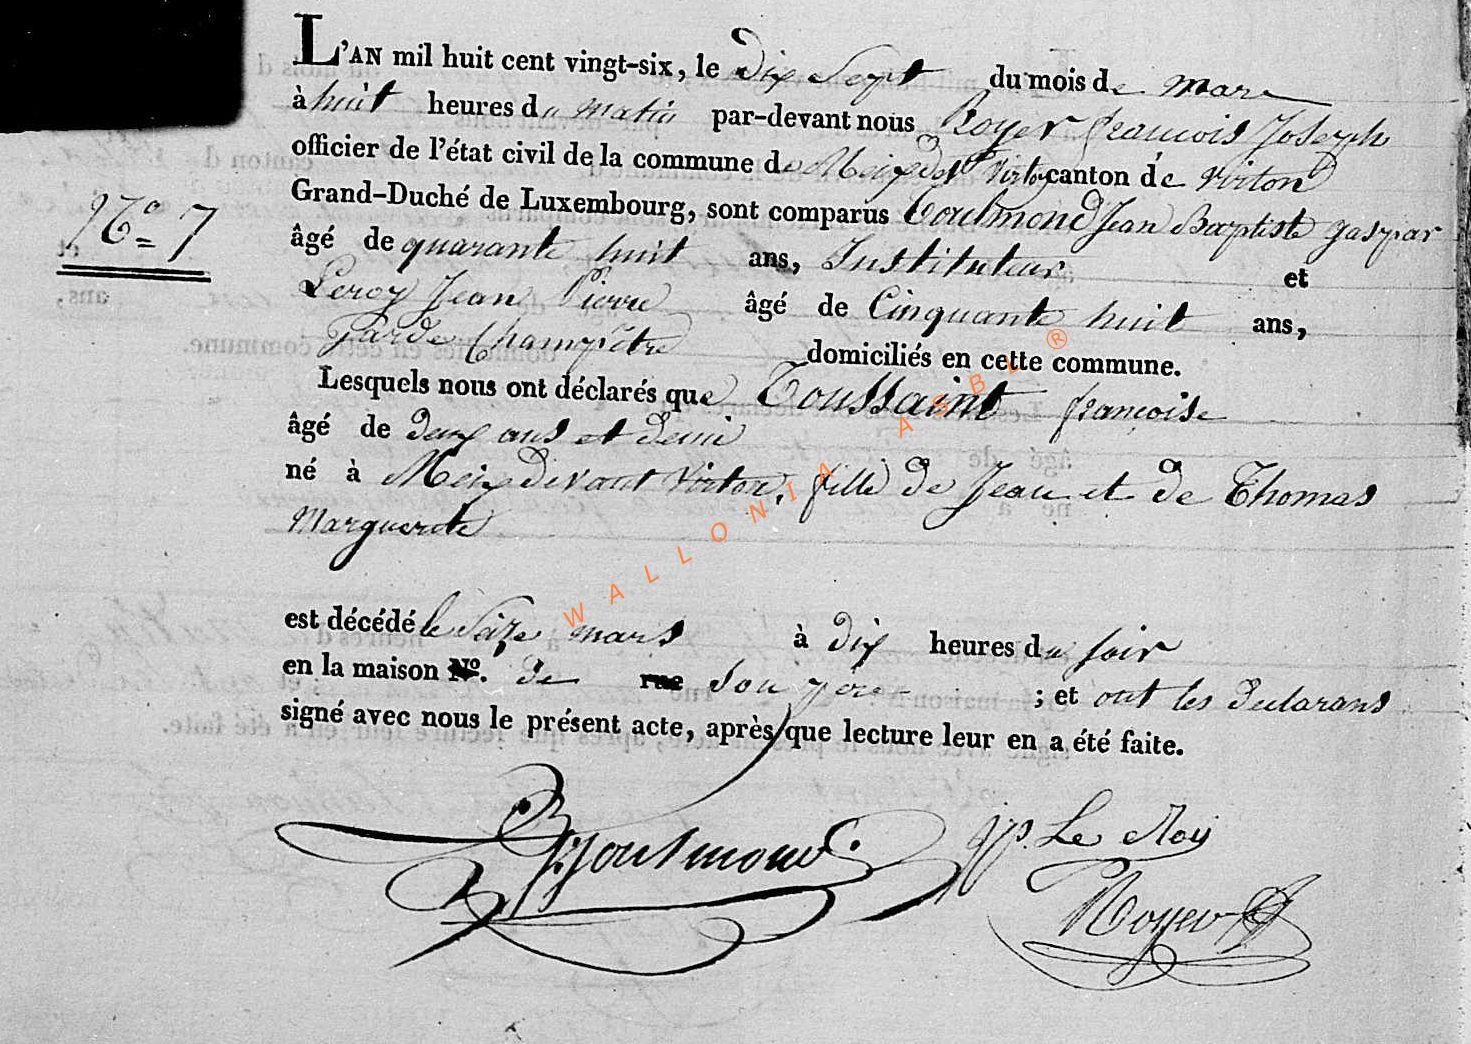 L'AN mil huit cent vingt-six, le dix Sept du mois de mars
à huit heures du matin par-devant nous Royer françois Joseph
officier de l'état civil de la commune de Meix dvt Virton canton de Virton
N.o 7
Grand-Duché de Luxembourg, sont comparus Toulmond Jean Baptiste gaspar
âgé de quarante huit ans, Instituteur et
Leroy Jean Pierre âgé de Cinquante huit ans,
garde Champêtre domiciliés en cette commune.
Lesquels nous ont déclarés que Toussaint françoise
âgé de deux ans et demi
né à Meix devant Virton, fille de Jean et de Thomas
Marguerite
est décédé le Saize mars à dix heures du soir
en la maison No. de rue son père ; et ont les declarans
signé avec nous le présent acte, après que lecture leur en a été faite.
Toulmond
jp. Le Roy
Royer
WALLONIA ASBL ®